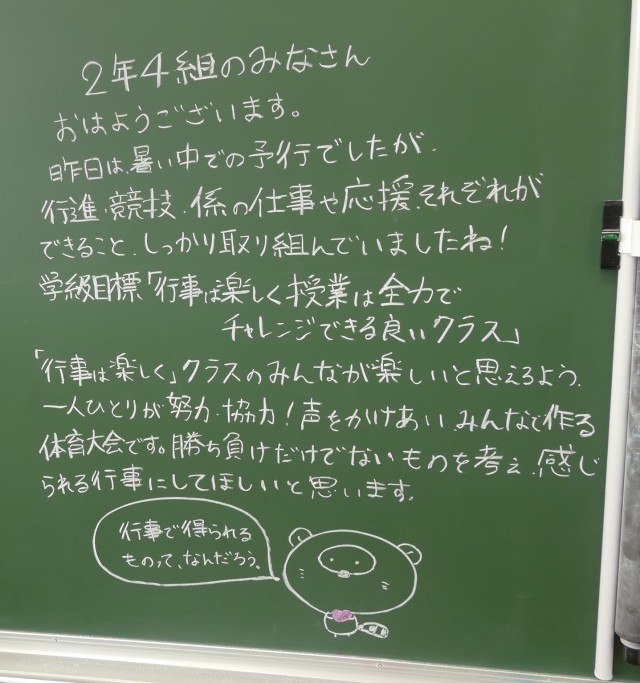 2年4組のみなさん
おはようございます。
昨日は、暑い中での予行でしたが、
行進、競技、係の仕事や応援、それぞれが
できること、しっかり取り組んでいましたね!
学級目標「行事は楽しく授業は全力で
チャレンジできる良いクラス」
「行事は楽しく」クラスのみんなが楽しいと思えるよう、
一人ひとりが努力、協力!声をかけあい みんなで作る
体育大会です。勝ち負けだけでないものを考え、感じ
られる行事にしてほしいと思います。
行事で得られる
ものって、なんだろう。